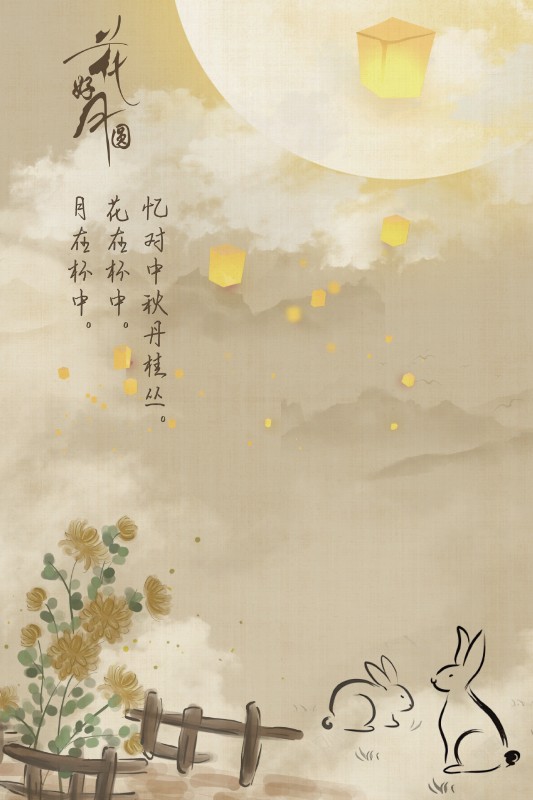 花好月圆
忆对中秋丹桂丛。
花在杯中。
月在杯中。